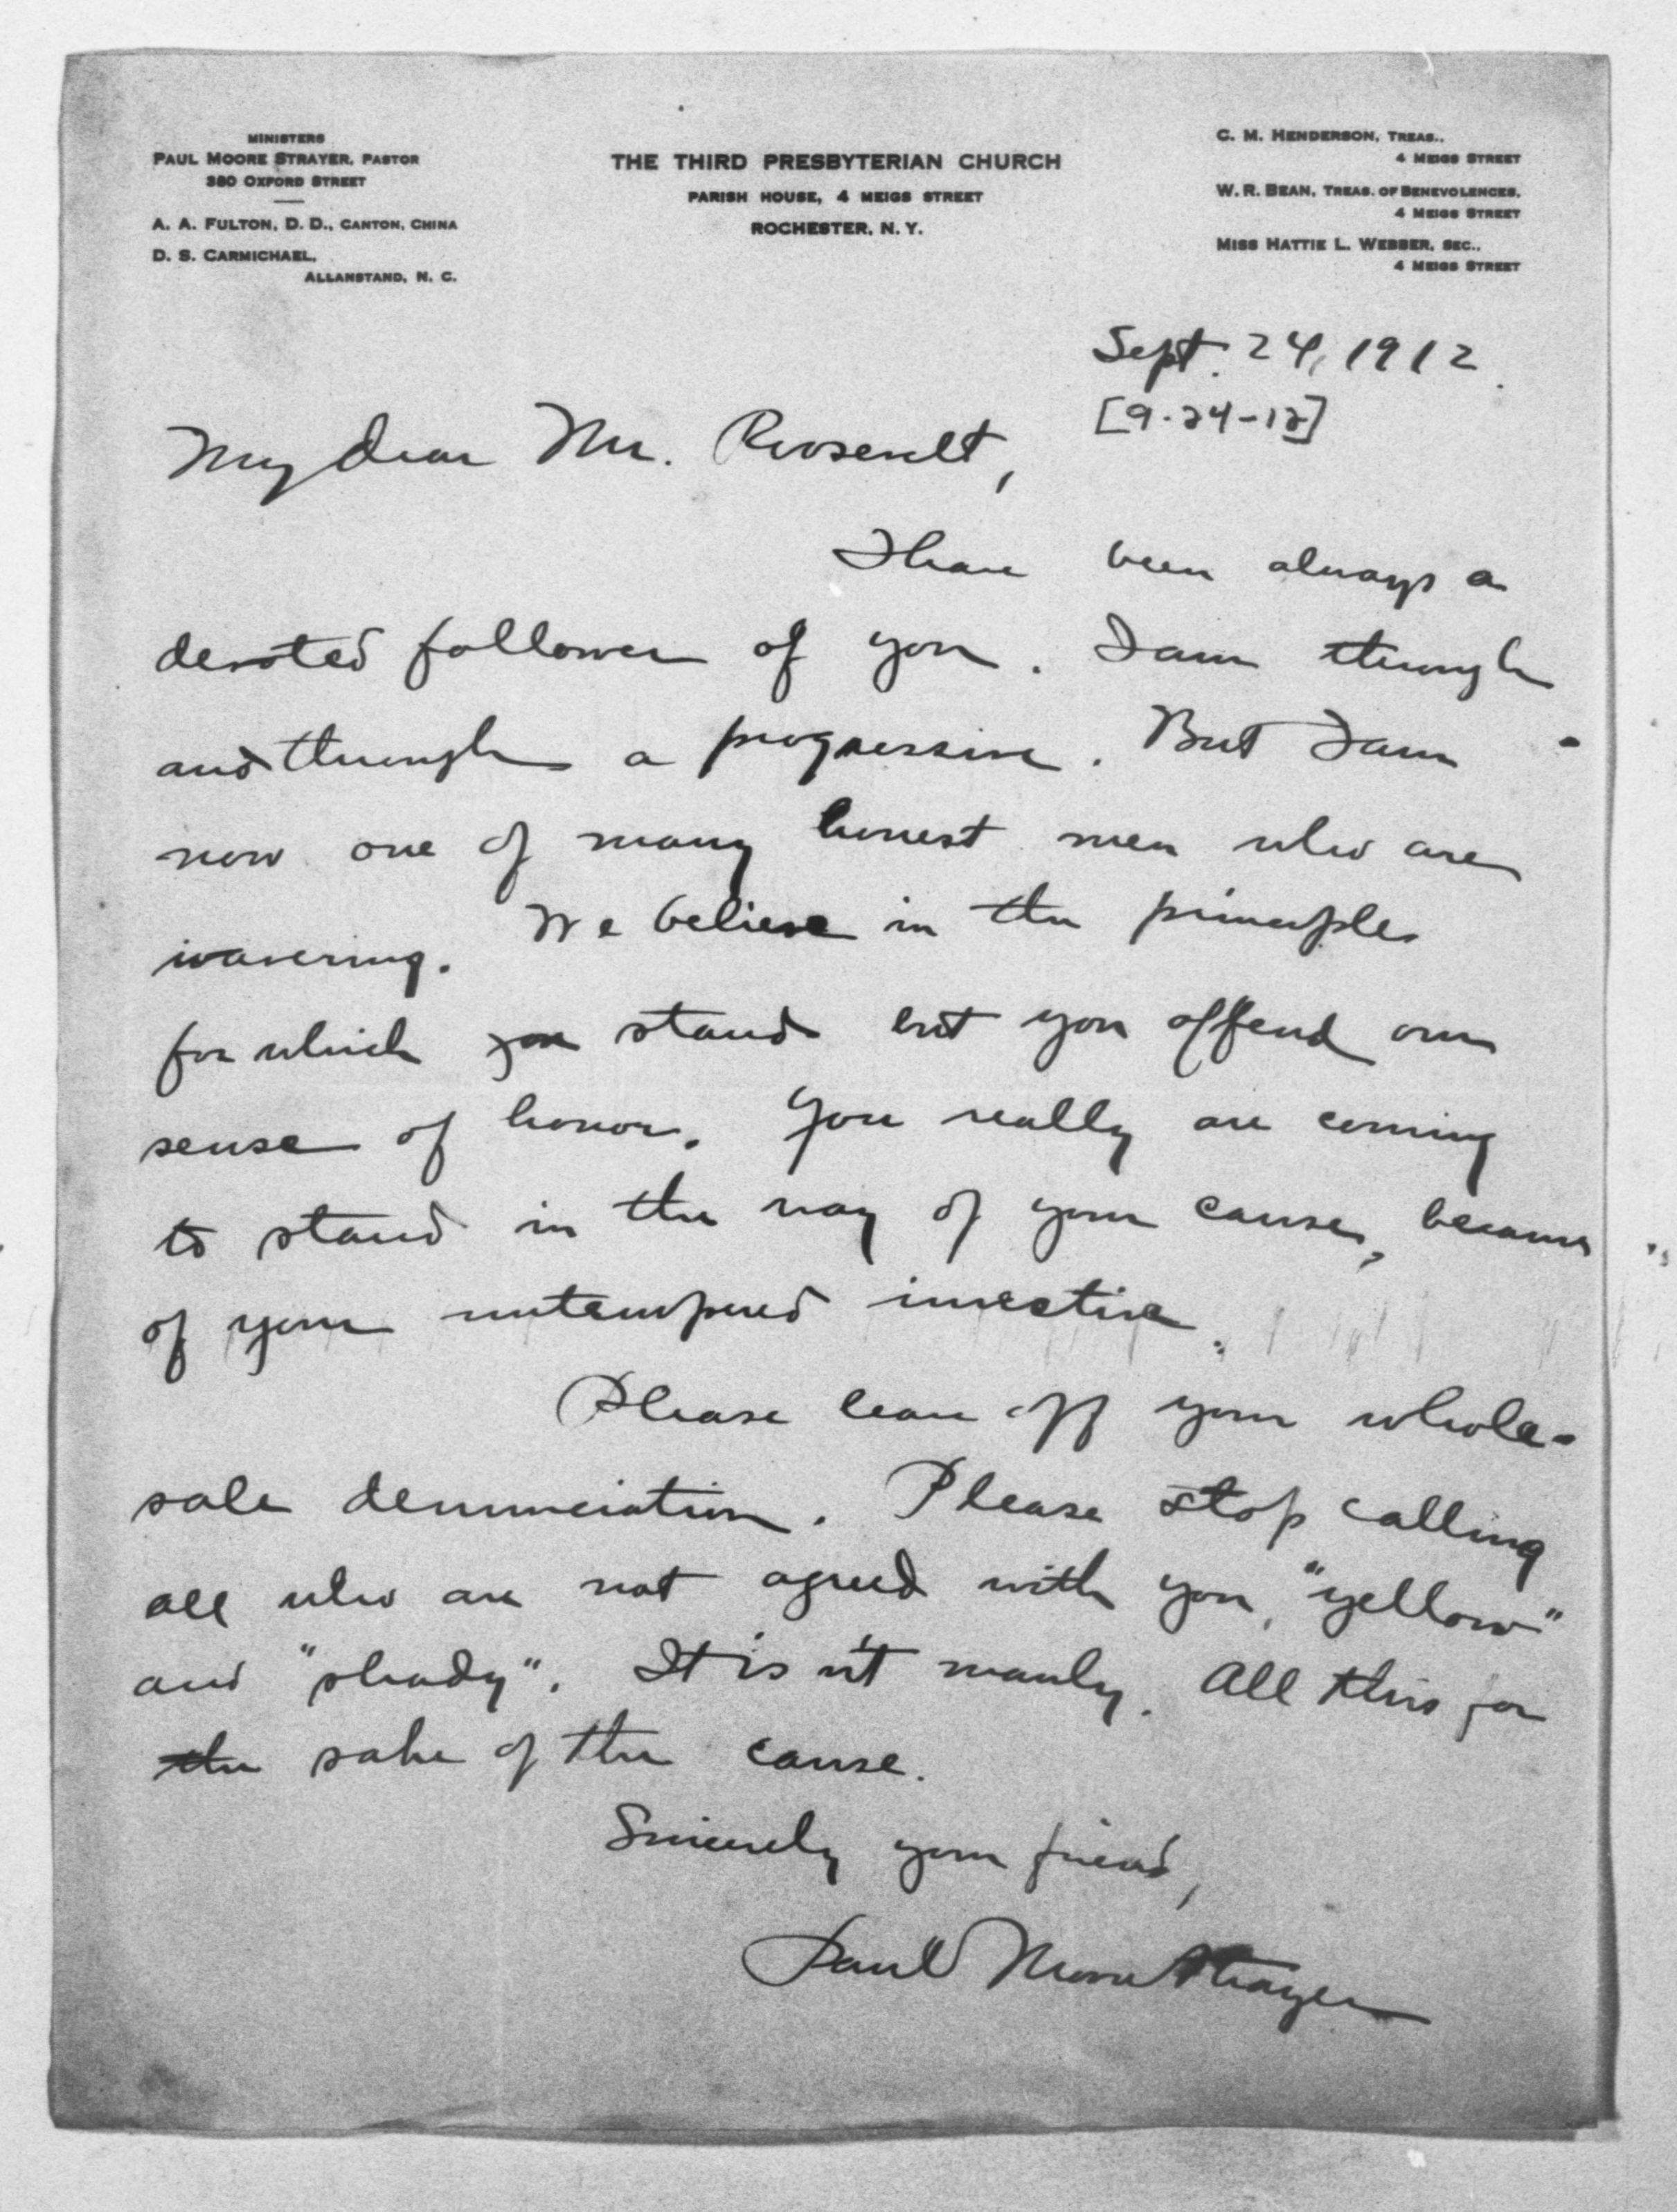 MINISTERS
PAUL MOORE STRAYER, PASTOR
380 OXFORD STREET
A. A. FULTON, D. D., CANTON, CHINA
D. S. CARMICHAEL,
ALLANSTAND, N. C.
THE THIRD PRESBYTERIAN CHURCH
PARISH HOUSE, 4 MEIGS STREET
ROCHESTER, N. Y.
C. M. HENDERSON, TREAS.,
4 MEIGS STREET
W. R. BEAN, TREAS. OF BENEVOLENCES,
4 MEIGS STREET
MISS HATTIE L. WEBBER, SEC.,
4 MEIGS STREET
Sept. 24, 1912.
[9-24-12]
My dear Mr. Roosevelt,
I have been always a
devoted follower of you. I am through
and through a progressive. But I am
now one of many honest men who are
wavering. We believe in the principles
for which you stand but you offend our
sense of honor. You really are coming
to stand in the way of your cause, because
of your untempered invective.
Please leave off your whole-
sale denunciation. Please stop calling
all who are not agreed with you, "yellow"
and "shady". It is n't manly. All this for
the sake of the cause.
Sincerely your friend,
Paul Moore Strayer